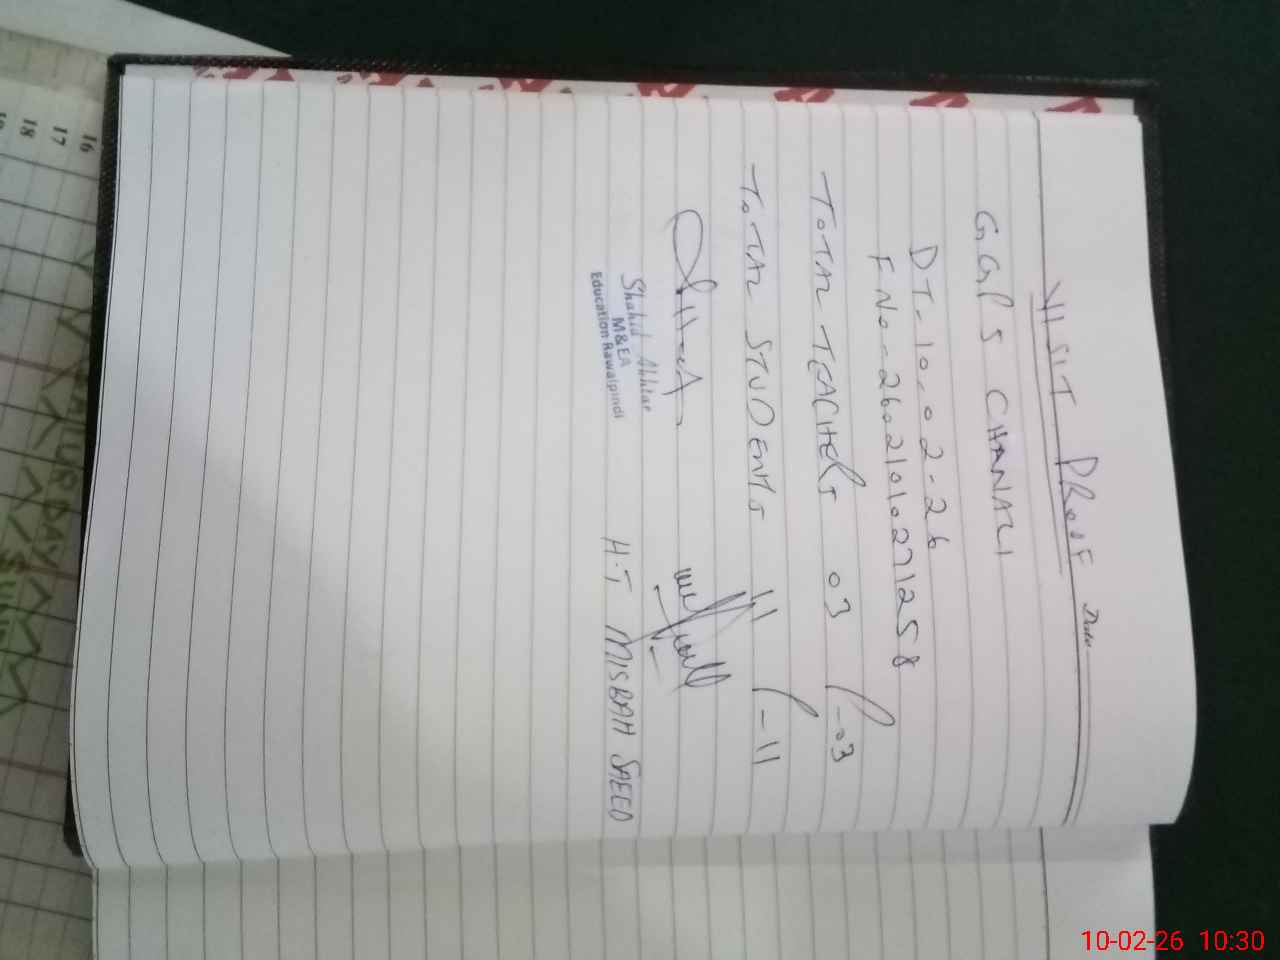 VISIT PROOF
Date
GGPS CHANALI
DT-10-02-26
F No-26021010271258
TOTAL TEACHERS 03 P-03
TOTAL STUDENTS 11 P-11
Shahid Akhtar
M&EA
Education Rawalpindi
H.T MISBAH SAEED
16
17
18
SATURDAY
SUN
10-02-26 10:30